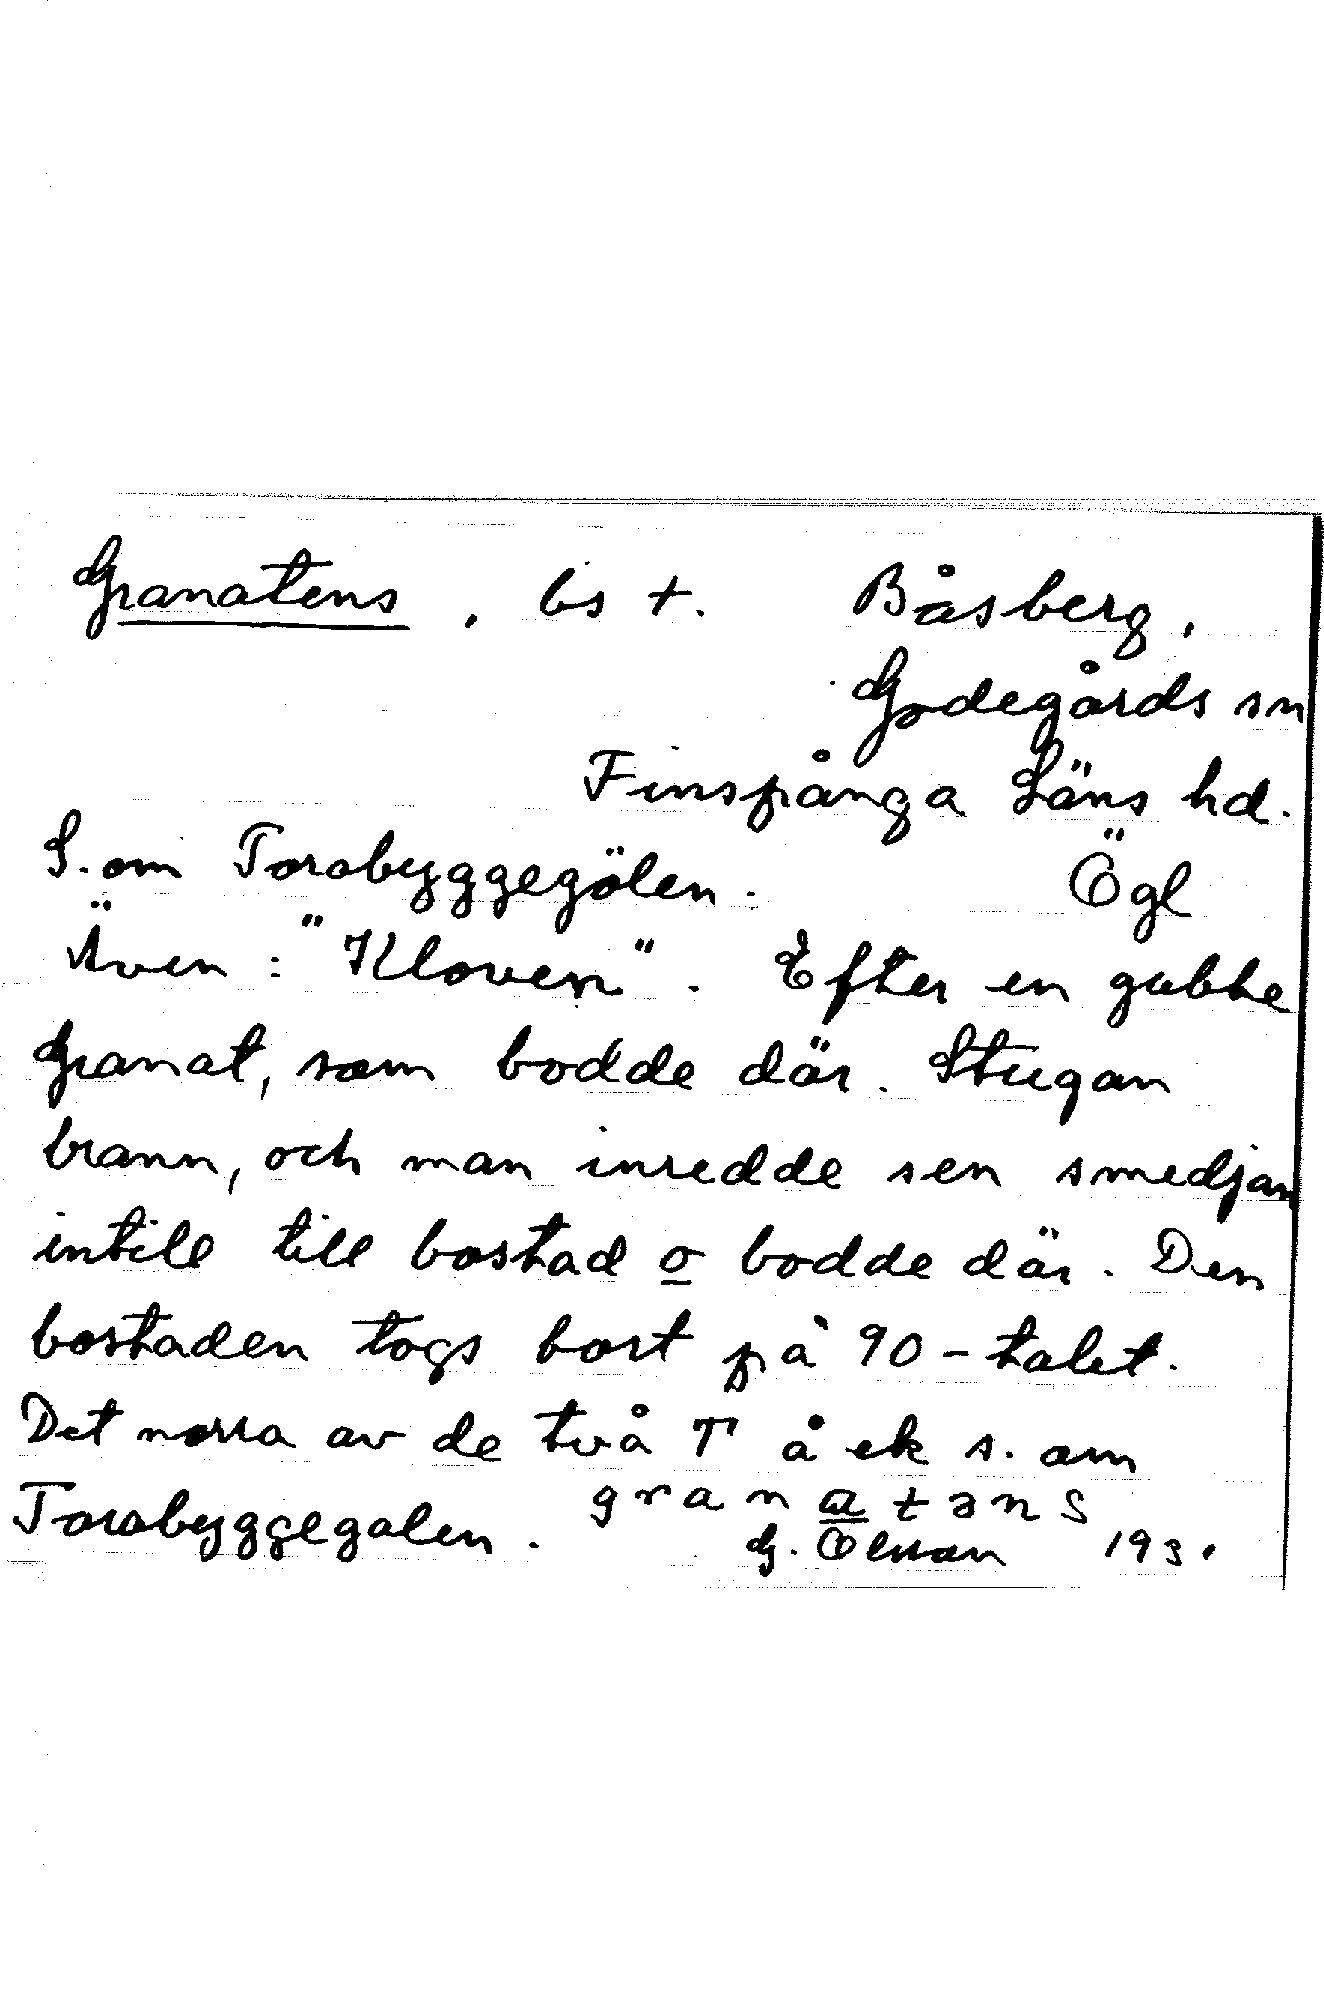 Granatens, bs +. Båsberg,
Godegårds sn
Finspånga Läns hd.
S. om Torabyggegölen. Ögl
Även: "Kloven". Efter en gubbe
Granat, som bodde där. Stugan
brann, och man inredde sen smedjan
intill till bostad o bodde där. Den
bostaden togs bort på 90-talet.
Det norra av de två T å ek s. om
Torabyggegölen. granatəns
G. Olsson 193